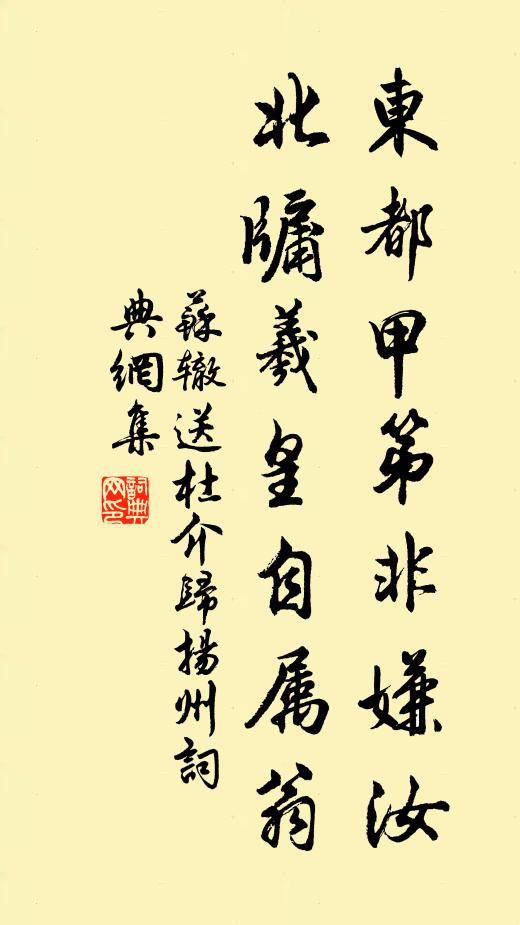 東都甲第非嫌汝
北牖羲皇自属翁
蘇辙送杜介歸揚州詞
典網集
詞典網印